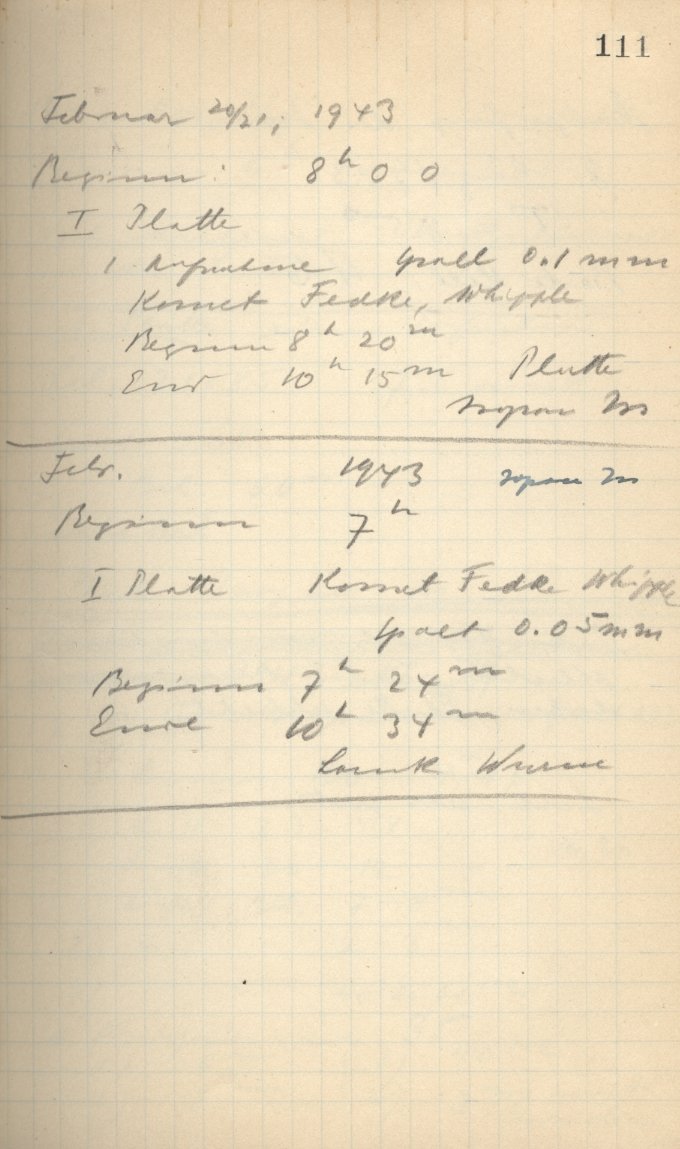 111
Februar 20/21, 1943
Beginn: 8h 0 0
I Platte
1 Aufnahme Spalt 0.1 mm
Komet Fedke, Whipple
Beginn 8h 20m
End 10h 15m Platte
Febr. 1943
Beginn 7h
I Platte Komet Fedke Whipple
Spalt 0.05mm
Beginn 7h 24m
Ende 10h 34m